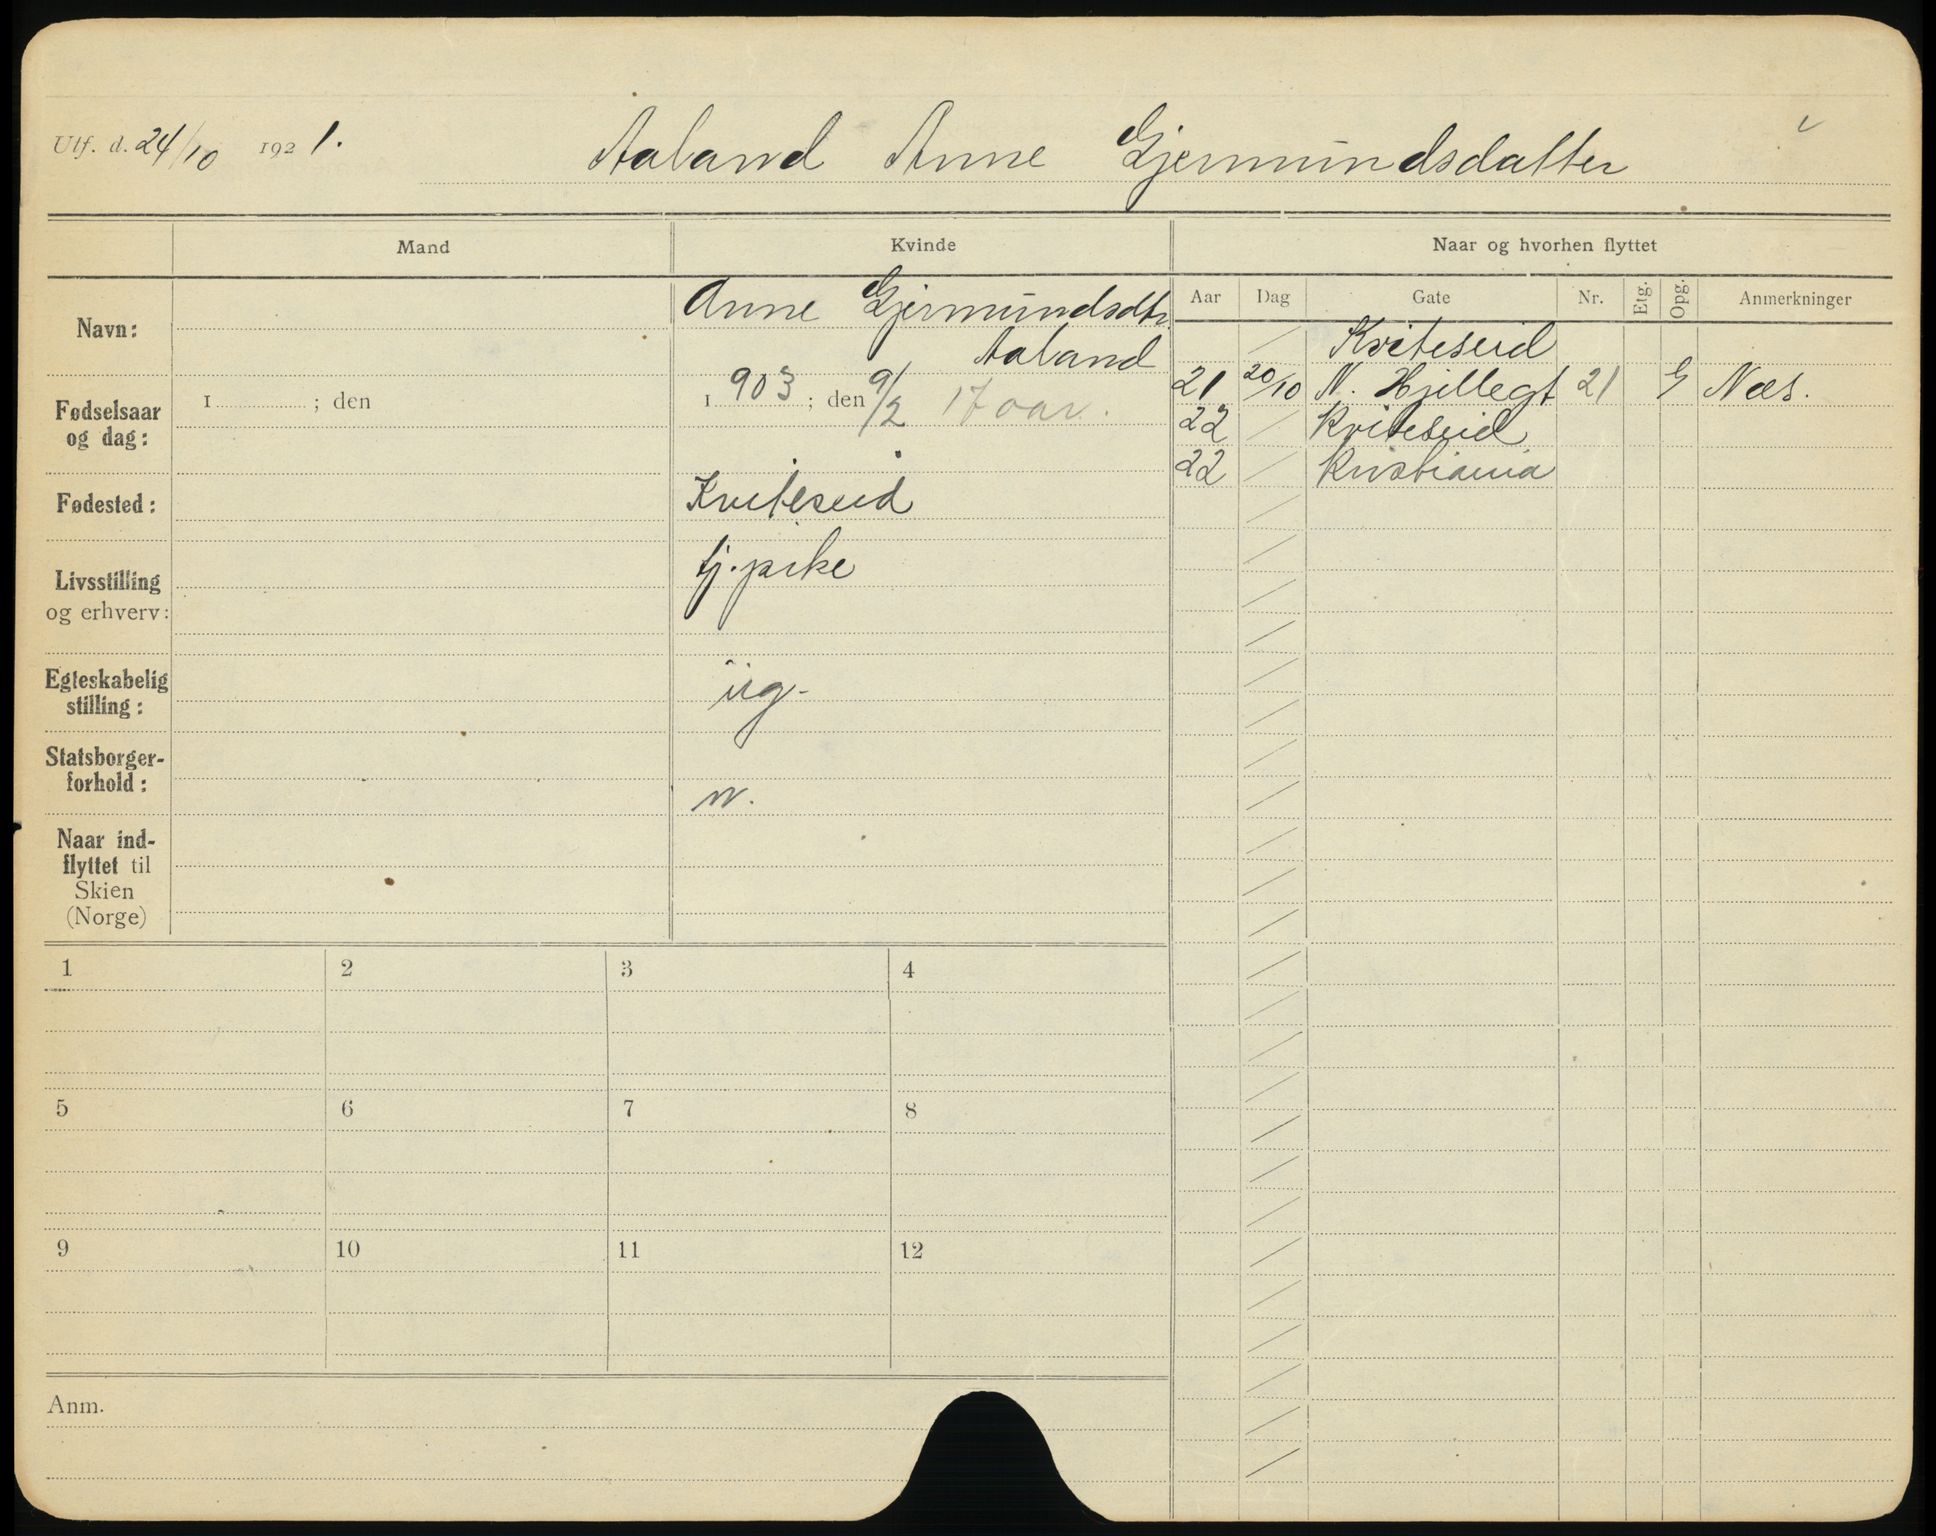 Utf. d. 24/10 1921.
Aaland Anne Gjermundsdatter
Mand
Kvinde
Naar og hvorhen flyttet
Navn:
Anne Gjermundsdtr.
Aaland
Fødselsaar
og dag:
1 ; den
1903 ; den 9/2 17 aar.
Fødested:
Kviteseid
Livsstilling
og erhverv:
tj. pike
Egteskabelig
stilling:
ug.
Statsborger-
forhold:
n.
Naar ind-
flyttet til
Skien
(Norge)
Aar Dag Gate Nr. Etg. Opg. Anmerkninger
/ Kviteseid
21 20/10 N. Hjellegt 21 G Næs.
22 / Kviteseid
22 / Kristiania
1 2 3 4
5 6 7 8
9 10 11 12
Anm.